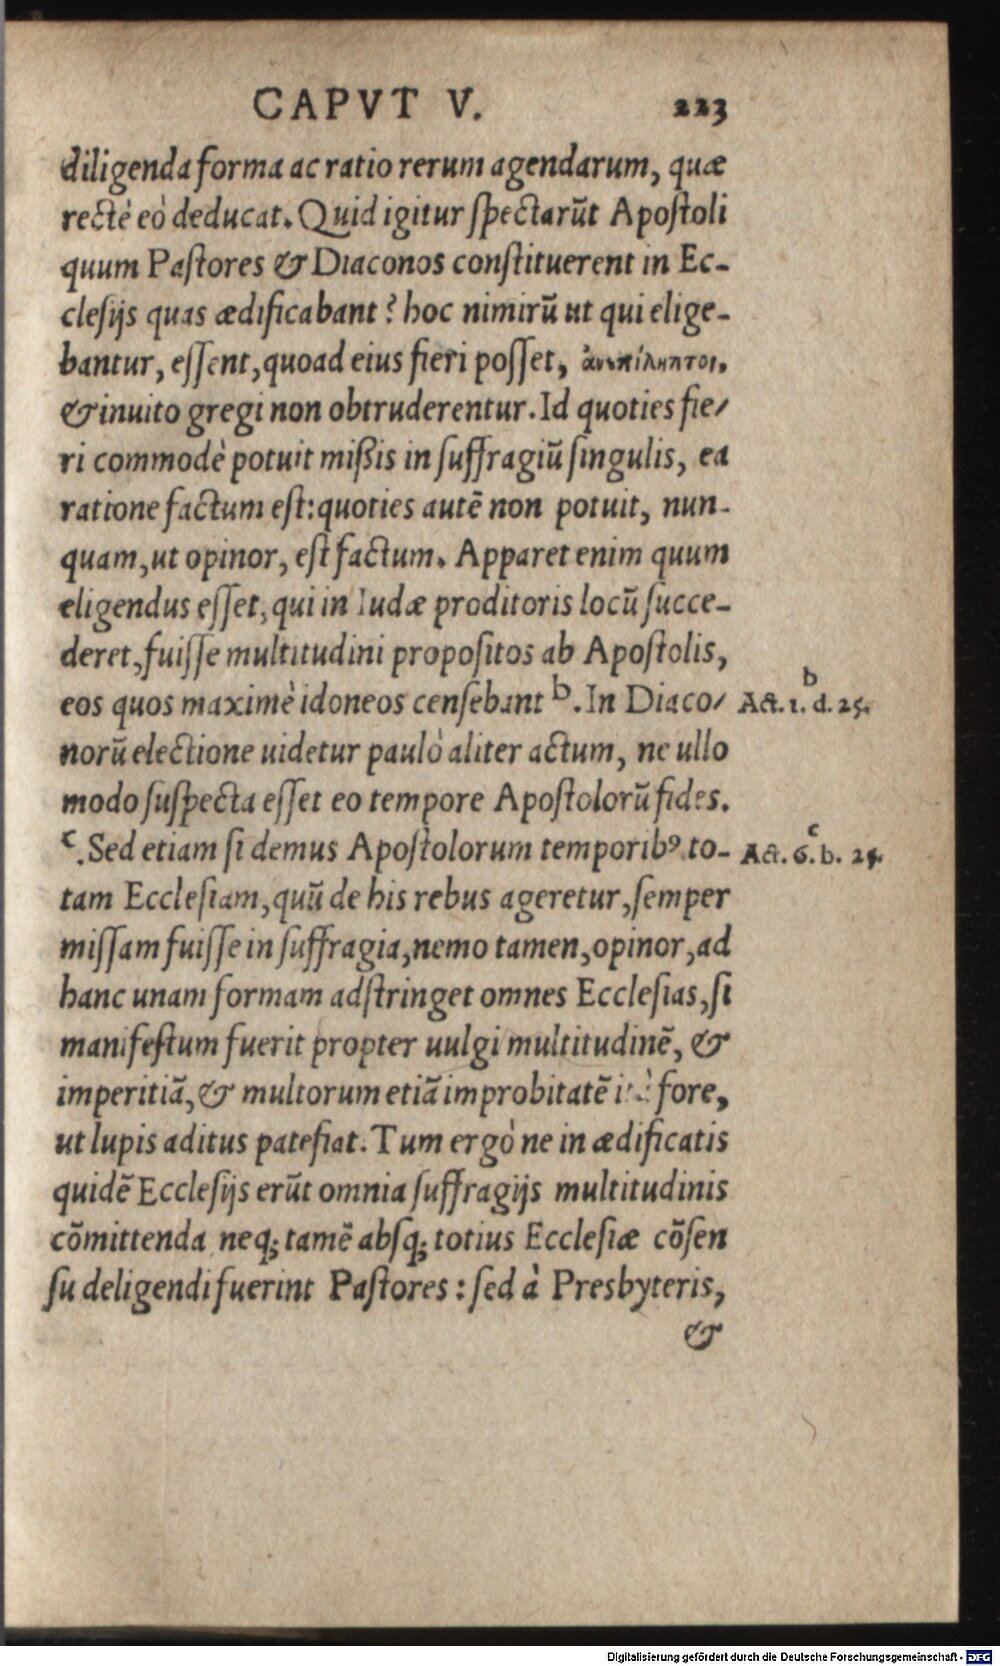 CAPVT V. 223
diligenda forma ac ratio rerum agendarum, quæ
rectè eò deducat. Quid igitur ſpectarūt Apoſtoli
quum Paſtores & Diaconos conſtituerent in Ec-
cleſijs quas ædificabant? hoc nimirū ut qui elige-
bantur, eſſent, quoad eius fieri poſſet, ἀνεπίληπτοι,
& inuito gregi non obtruderentur. Id quoties fie-
ri commodè potuit mißis in ſuffragiū ſingulis, ea
ratione factum eſt: quoties autē non potuit, nun-
quam, ut opinor, eſt factum. Apparet enim quum
eligendus eſſet, qui in Iudæ proditoris locū ſucce-
deret, fuiſſe multitudini propoſitos ab Apoſtolis,
eos quos maximè idoneos cenſebant b. In Diaco-
b
Act. 1. d. 25.
norū electione uidetur paulò aliter actum, ne ullo
modo ſuſpecta eſſet eo tempore Apoſtolorū fides.
c. Sed etiam ſi demus Apoſtolorum temporibꝰ to-
c
Act. 6. b. 25.
tam Eccleſiam, quū de his rebus ageretur, ſemper
miſſam fuiſſe in ſuffragia, nemo tamen, opinor, ad
hanc unam formam adſtringet omnes Eccleſias, ſi
manifeſtum fuerit propter uulgi multitudinē, &
imperitiā, & multorum etiā improbitatē fore,
ut lupis aditus patefiat. Tum ergò ne in ædificatis
quidē Eccleſijs erūt omnia ſuffragijs multitudinis
cōmittenda neq; tamē abſq; totius Eccleſiæ cōſen
ſu deligendi fuerint Paſtores: ſed à Presbyteris,
&
Digitalisierung gefördert durch die Deutsche Forschungsgemeinschaft - DFG